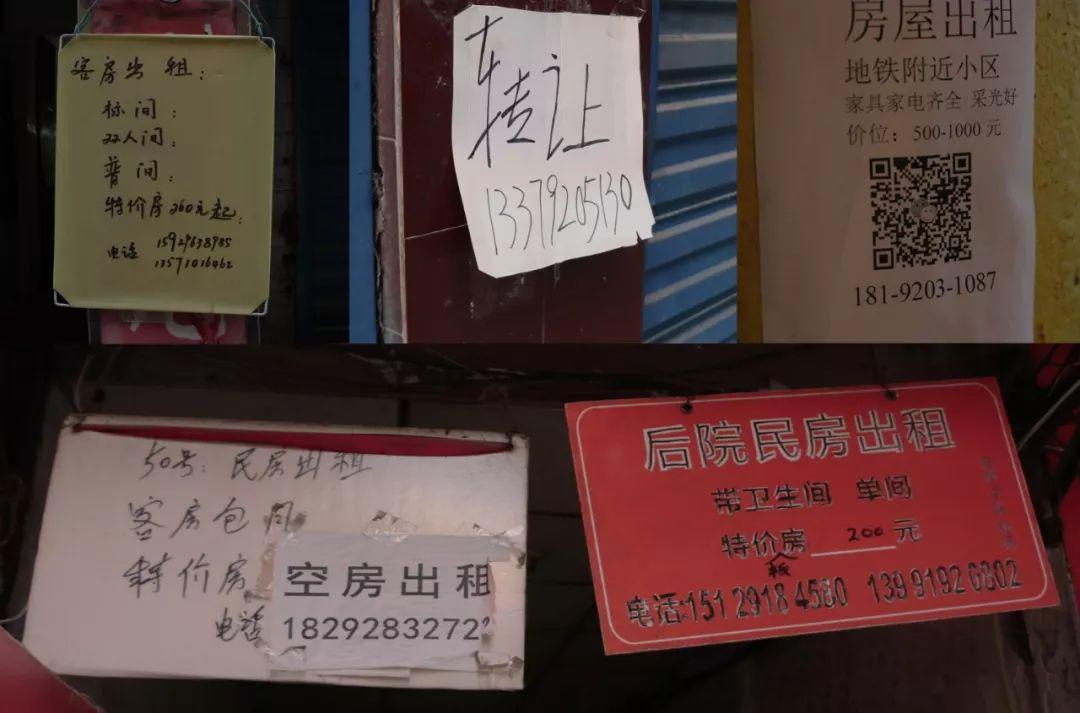 客房出租：
标间：
双人间：
普间：
特价房260元起：
电话 15929638985
13571016462
车转让
13379205130
房屋出租
地铁附近小区
家具家电齐全 采光好
价位：500-1000 元
181-9203-1087
50号：民房出租
客房包月
特价房
电话
空房出租
1829283272
后院民房出租
带卫生间 单间
特价房 200 元
板
电话:151 2918 4580 139 9192 6802